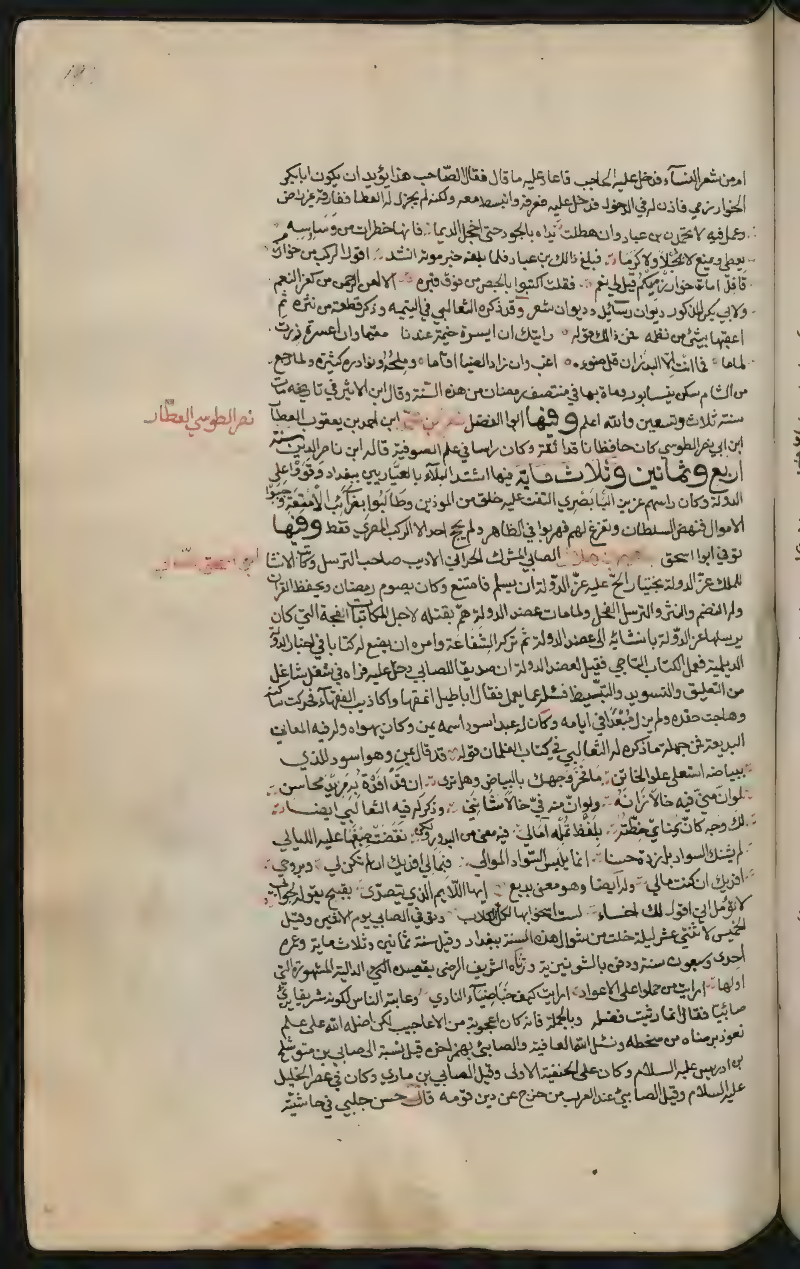 امن شعر النسآء فدخل عليه الحاجب فاعاد عليه ما قال فقال الصاحب هذا يؤيد ان يكون ابا بكر
الخوارزمي فاذن له في الدخول فدخل عليه فعرفه وانبسط معه ولكنه لم يجزل له العطا ففارقه غير راض
وعمل فيه لا تحمدن بن عباد وان هطلت يداه بالجود حتى اخجل الديما فانها خطرات من وساوسه
يعطي ويمنع لا بخلا ولا كرما فبلغ ذالك بن عباد فلما بلغه خبر موته انشد اقول لركب من خراسان
قافل امات خوارزميكم قيل لي نعم فقلت اكتبوا بالجص من فوق قبره الا لعن الرحمن من كفر النعم
ولابي بكر المذكور ديوان رسائل وديوان شعر وقد ذكره الثعالبي في اليتيمه وذكر قطعة من نثره ثم
اعقبها بشئ من نظمه فمن ذالك قوله رايتك ان ايسرت خيمت عندنا مقيما وان اعسرت زرت
لماما فما انت الا البدر ان قل ضوءه اغب وان زاد الضيا اقاما وملحه ونوادره كثيرة ولما رجع
من الشام سكن نيسابور ومات بها في منتصف رمضان من هذه السنة وقال ابن الاثير في تاريخه مات
سنة ثلاث وتسعين والله اعلم وفيها ابو الفضل نصر بن محمد ابن احمد بن يعقوب العطار
نصر الطوسي العطار
ابن ابي نصر الطوسي كان حافظا ناقدا ثقة وكان راسا في علم الصوفية قاله ابن ناصر الدين سنة
اربع وثمانين وثلاث ماية فيها اشتد البلاء بالعيارين ببغداد وقووا على
الدولة وكان راسهم عزيز البابصري التفت عليه خلق من الموذين وطالبوا بضرائب الامتعة وجبوا
الاموال فنهض السلطان وتفرغ لهم فهربوا في الظاهر ولم يحج احد الا الركب المصري فقط وفيها
توفي ابو اسحق ابرهيم بن هلال الصابي المشرك الحراني الاديب صاحب الترسل وكاتب الانشا
ابو اسحق الصابي
للملك عز الدولة بختيار الح عليه عز الدولة ان يسلم فامتنع وكان يصوم رمضان ويحفظ القرآن
وله النظم والنثر والترسل الفحل ولما مات عضد الدولة هم بقتله لاجل المكاتبات الفجة التي كان
يرسلها عز الدولة بانشائه الى عضد الدولة ثم تركه لشفاعة وامره ان يضع له كتابا في اخبار الدولة
الديلمية فعمل الكتاب التاجي فقيل لعضد الدولة ان صديقا للصابي دخل عليه فراه في شغل شاغل
من التعليق والتسويد والتبييض فسئله عما يعمل فقال اباطيل انمقها واكاذيب الفقها فحركت ساكنه
وهاجت حقده ولم يزل مبعدا في ايامه وكان له عبد اسود اسمه يمن وكان يهواه وله فيه المعاني
البديعة فمن جملة ما ذكره له الثعالبي في كتاب الغلمان قوله قد قال يمن وهو اسود للذي
ببياضه استعلى علو الخاتن ما فخر وجهك بالبياض وهل ترى ان قد افدت به مزيد محاسن
لو ان مني فيه خالا زانه ولو ان منه في خالا شانني وذكر له فيه الثعالبي ايضا
لك وجه كان يمناي خطته بلفظ تمله امالي فيه معنى من البدور ولكن نفضت صبغها عليه الليالي
لم يشنك السواد بل زدت حسنا انما يلبس السواد الموالي فبمالي افديك ان لم تكن لي وبروحي
افديك ان كنت مالي وله ايضا وهو معنى بديع ايها اللائم الذي يتصدى بقبيح يقوله لجوابي
لا تؤمل اني اقول لك اخساء لست اسخوا بها لكل الكلاب وتوفي الصابي يوم الاثنين وقيل
الخميس لاثنتي عشر ليلة خلت من شوال هذه السنة ببغداد وقيل سنة ثمانين وثلاث ماية وعمره
احدى وسبعون سنة ودفن بالشونيزية ورثاه الشريف الرضي بقصيدته الدالية المشهورة التي
اولها ارايت من حملوا على الاعواد ارايت كيف خبا ضياء النادي وعاتبه الناس لكونه شريفا يرثي
صابئيا فقال انما رثيت فضله وبالجملة فانه كان اعجوبة من الاعاجيب لكن اضله الله على علم
نعوذ برضاه من سخطه ونسئل الله العافية والصابئ بهمز اخره قيل نسبة الى صابي بن متوشلخ
بن ادريس عليه السلام وكان على الحنيفية الاولى وقيل الصابي بن ماري وكان في عصر الخليل
عليه السلام وقيل الصابئ عند العرب من خرج عن دين قومه قال حسن جلبي في حاشية